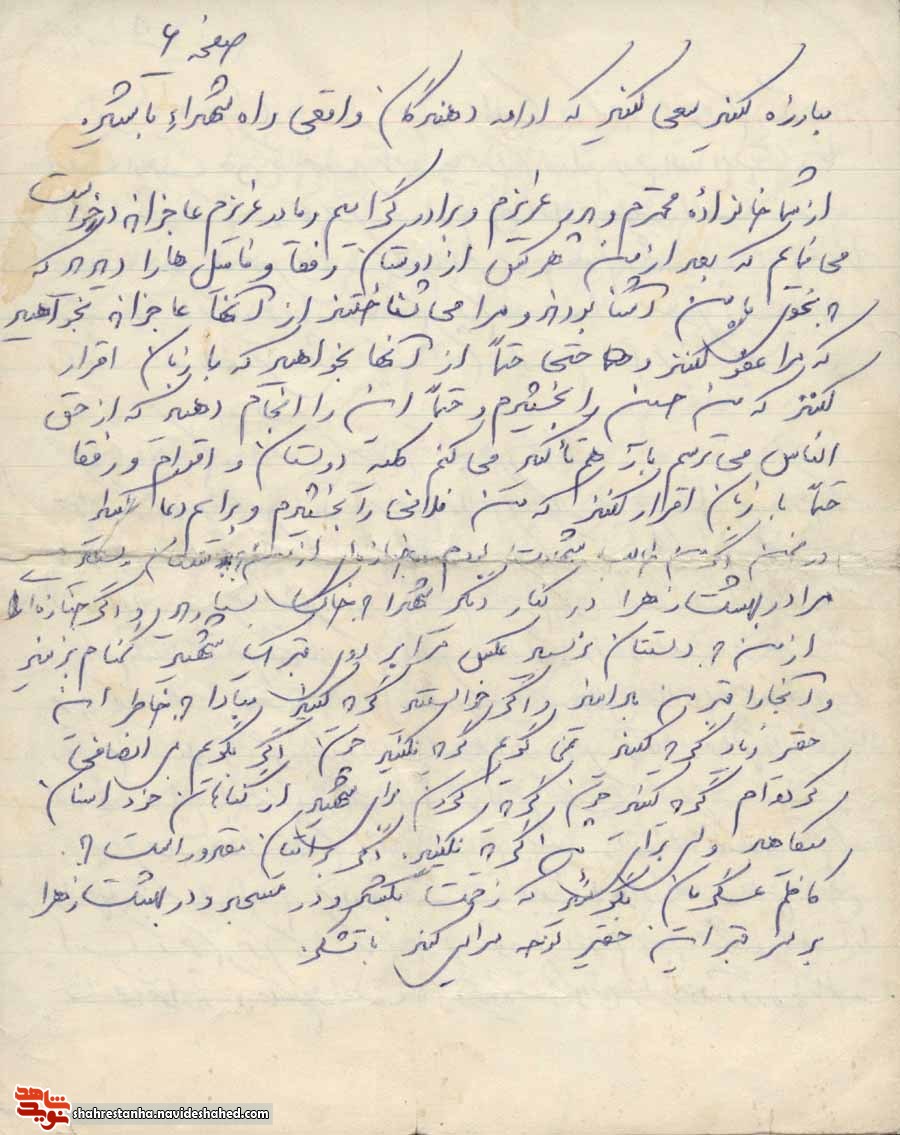 صفحه ۶
مبارزه کنید سعی کنید که ادامه دهندگان واقعی راه شهداء باشید.
از شما خانواده محترم و پدر عزیزم و برادر گرامیم و مادر عزیزم عاجزانه درخواست
می نمایم که بعد از من هر کس از دوستان رفقا و فامیل ها را دیدید که
به نحوی با من آشنا بودند و مرا می شناختند از آنها عاجزانه بخواهید
که مرا عفو کنند و حتی حتماً از آنها بخواهید که با زبان اقرار
کنند که من را بخشیدم و حتماً این را انجام دهید که از حق
الناس می ترسم باز هم تأکید می کنم کلیه دوستان و اقوام و رفقا
حتماً با زبان اقرار کنند که من فلانی را بخشیدم و برایم دعا کنند
در ضمن اگر من شهادت جنازه از من
مرا در بهشت زهرا در کنار دیگر شهدا به خاک بسپارید و اگر جنازه ای
از من به دستتان نرسید عکس مرا بر روی قبر یک شهید گمنام بزنید
و آنجا را قبر من بدانید و اگر خواستید گریه کنید مبادا به خاطر این
حقیر زیاد گریه کنید نمی گویم گریه نکنید چون اگر بگویم بی انصافی
کرده ام گریه کنید چون گریه کردن برای شهید از گناهان خود انسان
میکاهد ولی برای من گریه نکنید. اگر برایتان مقدور است به
کاظم عسگریان بگوئید که زحمت بکشد و در مسجد و در بهشت زهرا
بر سر قبر این حقیر نوحه سرایی کند با تشکر.
شاهد
نوید
shahrestanha.navideshahed.com